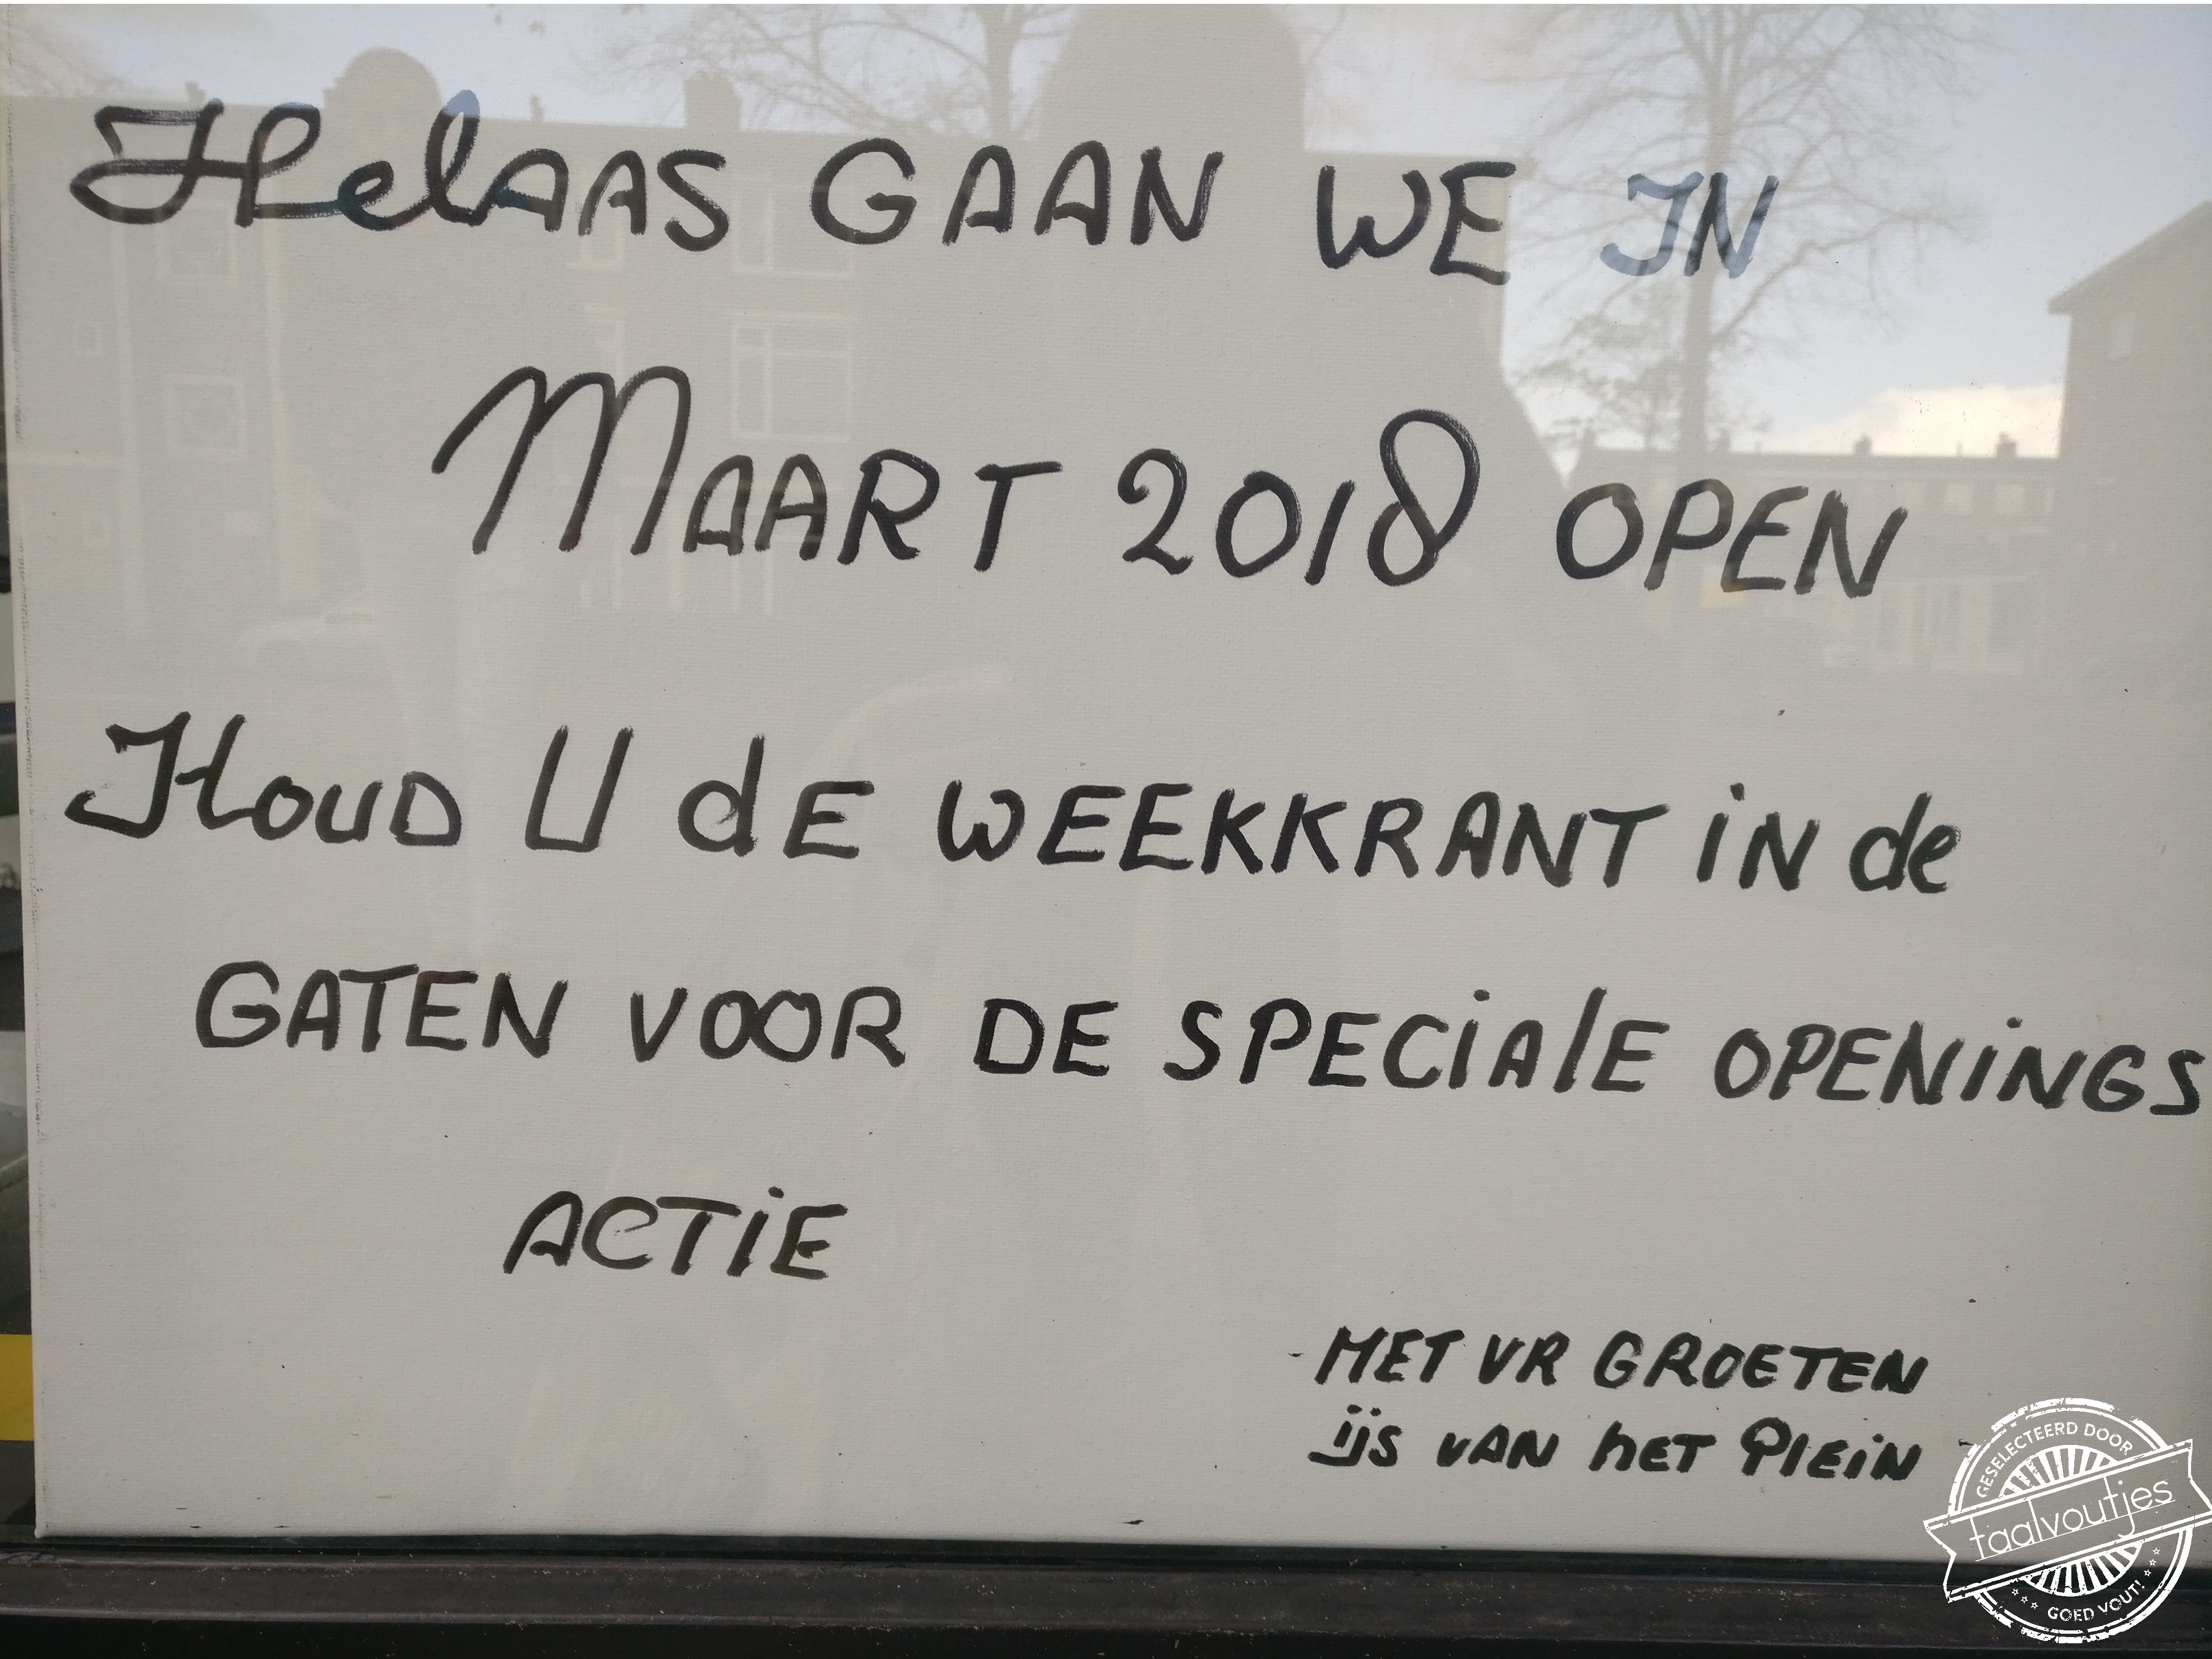 HelAAS GAAN WE IN
MAART 2018 OPEN
HOUD U dE WEEKKRANT iN de
GATEN VOOR DE SPECiAlE OPENiNGS
ACTiE
MET VR GROETEN
ijs VAN hET PlEiN
GESELECTEERD DOOR
taalvoutjes
GOED VOUT!